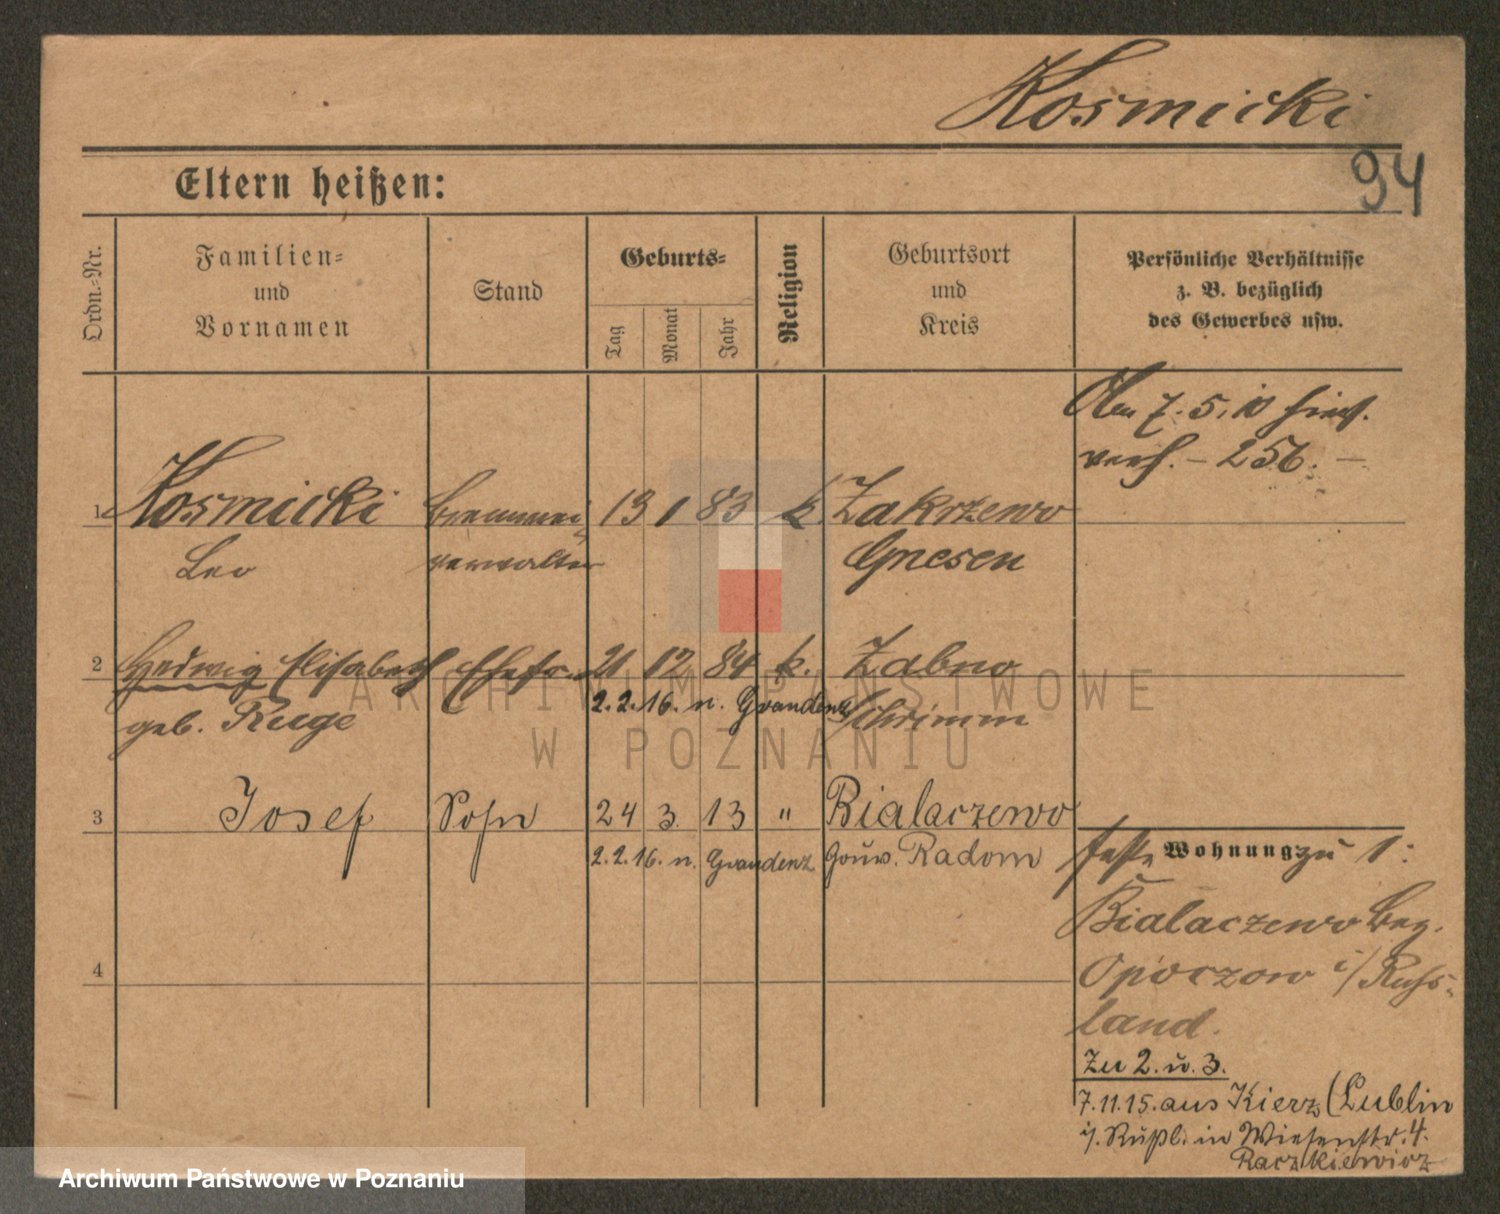 Kosmicki
94
Eltern heißen:
Ordn.-Nr.
Familien-
und
Vornamen
Stand
Geburts-
Tag
Monat
Jahr
Religion
Geburtsort
und
Kreis
Persönliche Verhältnisse
z. B. bezüglich
des Gewerbes usw.
Am 7.5.10 hier
verh. - 256. -
1 Kosmicki Brennerei 13 1 83 k. Zakrzewo
Leo verwalter Gnesen
2 Hedwig Elisabeth Ehefr. 21 12 84 k. Zabno
geb. Ruge 2.2.16. n. Graudenz Schrimm
3 Josef Sohn 24 3. 13 " Bialaczewo
2.2.16. n. Graudenz Gouv. Radom
4
feste Wohnung zu 1:
Bialaczewo Bez.
Opoczow i/Russ-
land.
Zu 2. u. 3.
7.11.15. aus Kierz (Lublin
i/. Rußl. in Wiesenstr. 4.
Raczkiewicz
ARCHIWUM PAŃSTWOWE
W POZNANIU
Archiwum Państwowe w Poznaniu